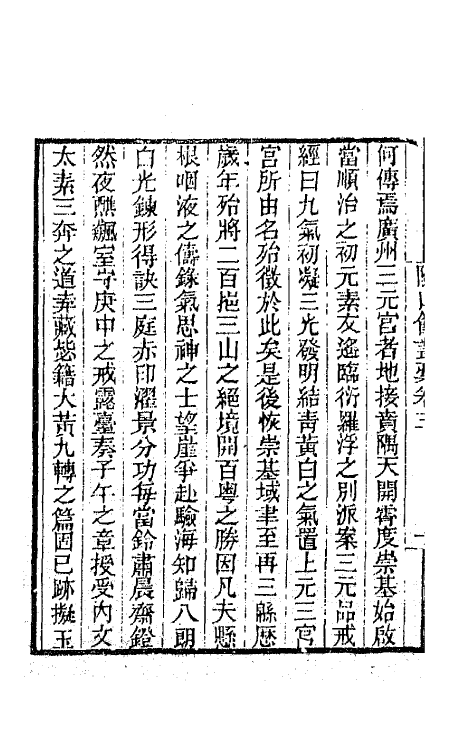 何傳焉廣州三元宮者地接賁隅天開霄度崇基始啟
當順治之初元素友遙臨衍羅浮之別派案三元品戒
經曰九氣初凝三光發明結靑黃白之氣置上元三宮
宮所由名殆徵於此矣是後恢崇基域聿至再三緜歷
歲年殆將二百抱三山之絕境開百粵之勝因凡夫懸
根咽液之儔錄氣思神之士望崖爭赴驗海知歸八朗
白光鍊形得訣三庭赤印濯景分功每當鈴肅晨齋鐙
然夜醮飆室守庚申之戒露臺奏子午之章授受內文
太素三奔之道弆藏祕籍大黃九轉之篇固已跡擬玉
卷三